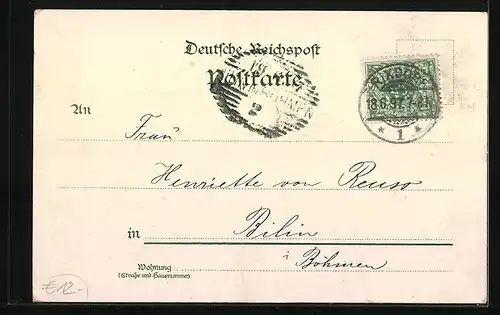 Deutsche Reichspost
Postkarte
RIXDORF
18.6.97.7-8N.
* 1 *
An
Frau
Henriette von Reuss
in Bilin
i Böhmen
Wohnung
(Straße und Hausnummer)
€12.-